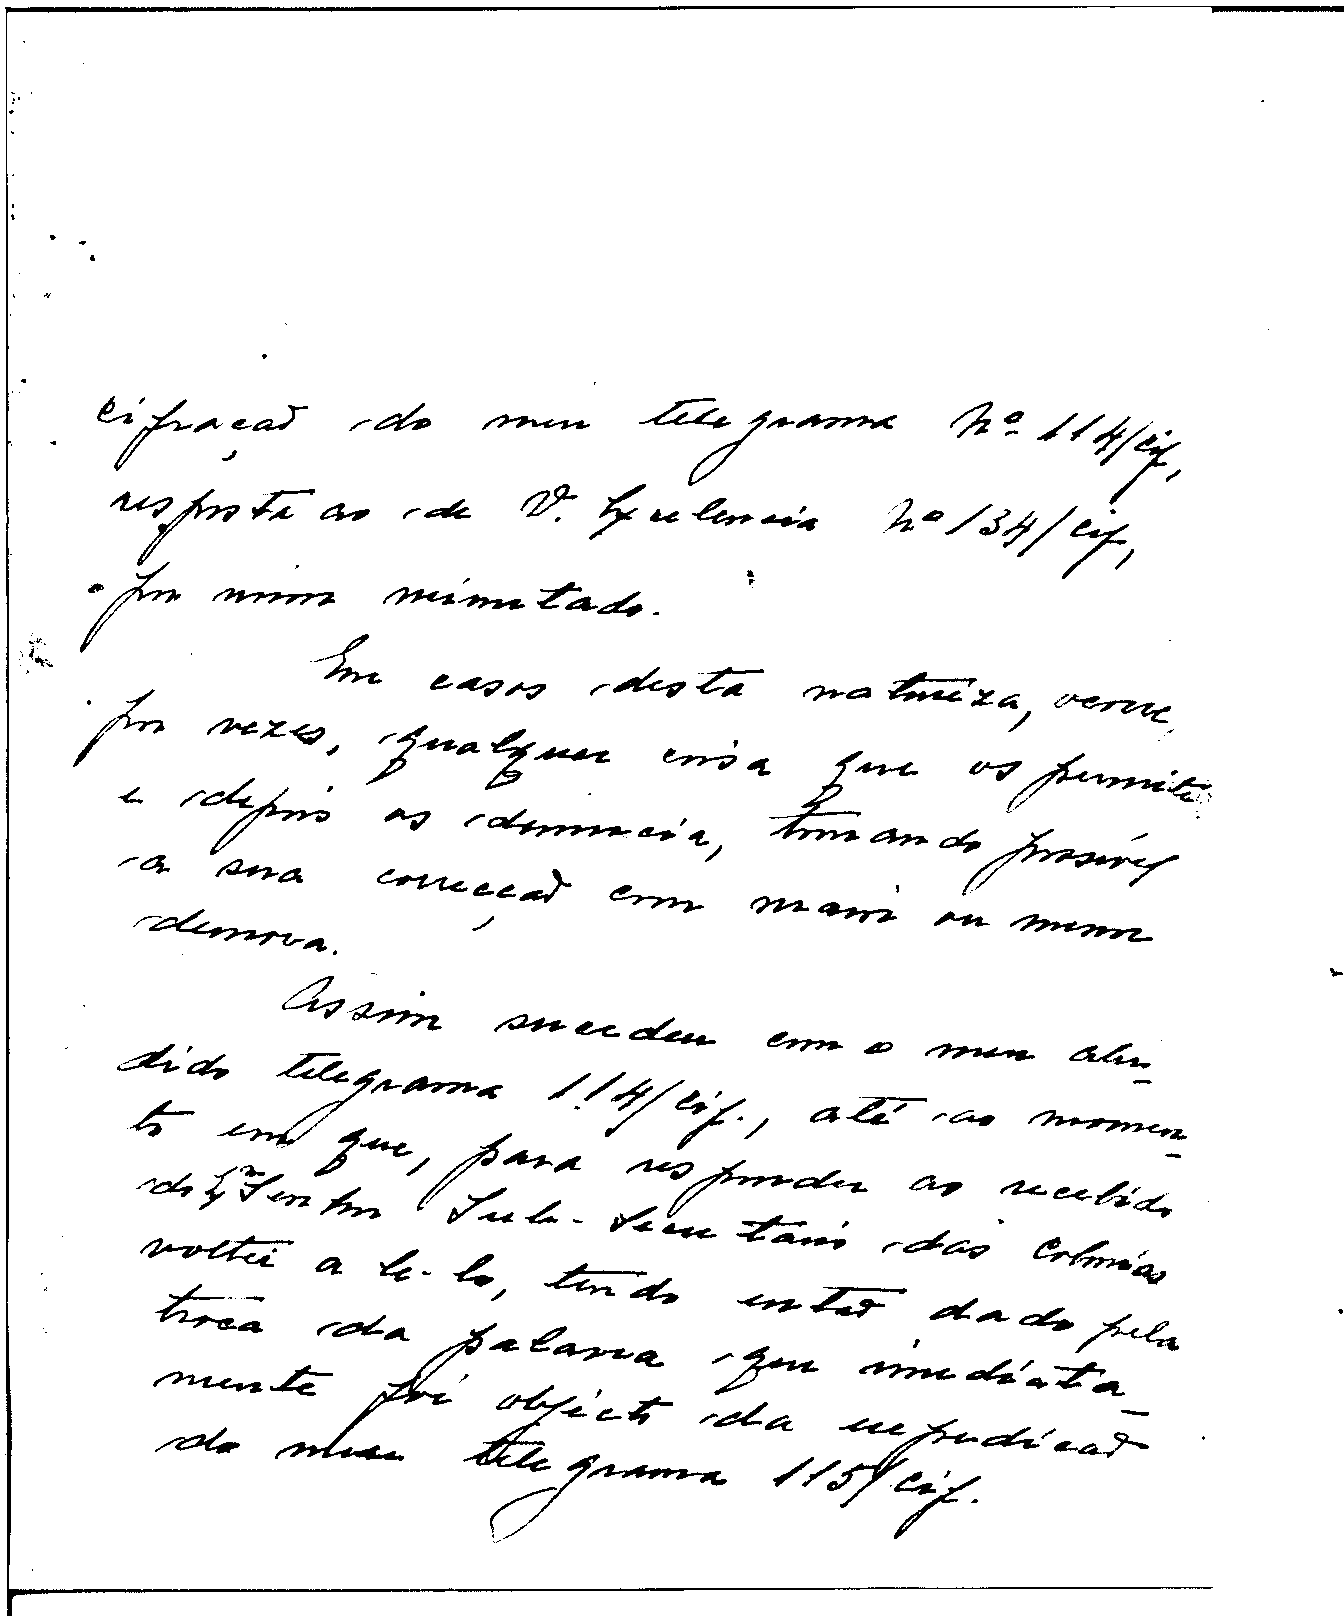 cifração do meu telegrama Nº 114/cif,
resposta ao de V. Excelencia Nº 134/cif,
por mim minutado.
Em casos desta natureza, ocorre,
por vezes, qualquer coisa que os permite
e depois os denuncia, tornando possivel
a sua correcção com maior ou menor
demora.
Assim sucedeu com o meu alu-
dido telegrama 114/cif., até ao momen-
to em que, para responder ao recebido
do Senhor Sub-Secretário das Colonias
voltei a le-lo, tendo então dado pela
troca da palavra que imediata-
mente foi objecto da
do meu telegrama 115/cif.